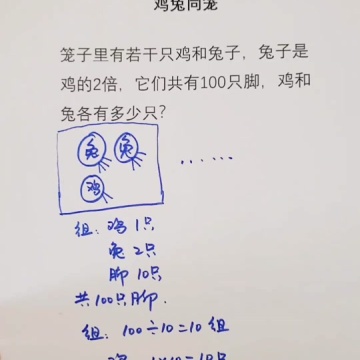 鸡兔同笼
笼子里有若干只鸡和兔子，兔子是
鸡的2倍，它们共有100只脚，鸡和
兔各有多少只？
兔 兔 ......
鸡
组：鸡 1只
兔 2只
脚 10只
共100只脚.
组：100÷10=10 组
鸡：1×10=10只